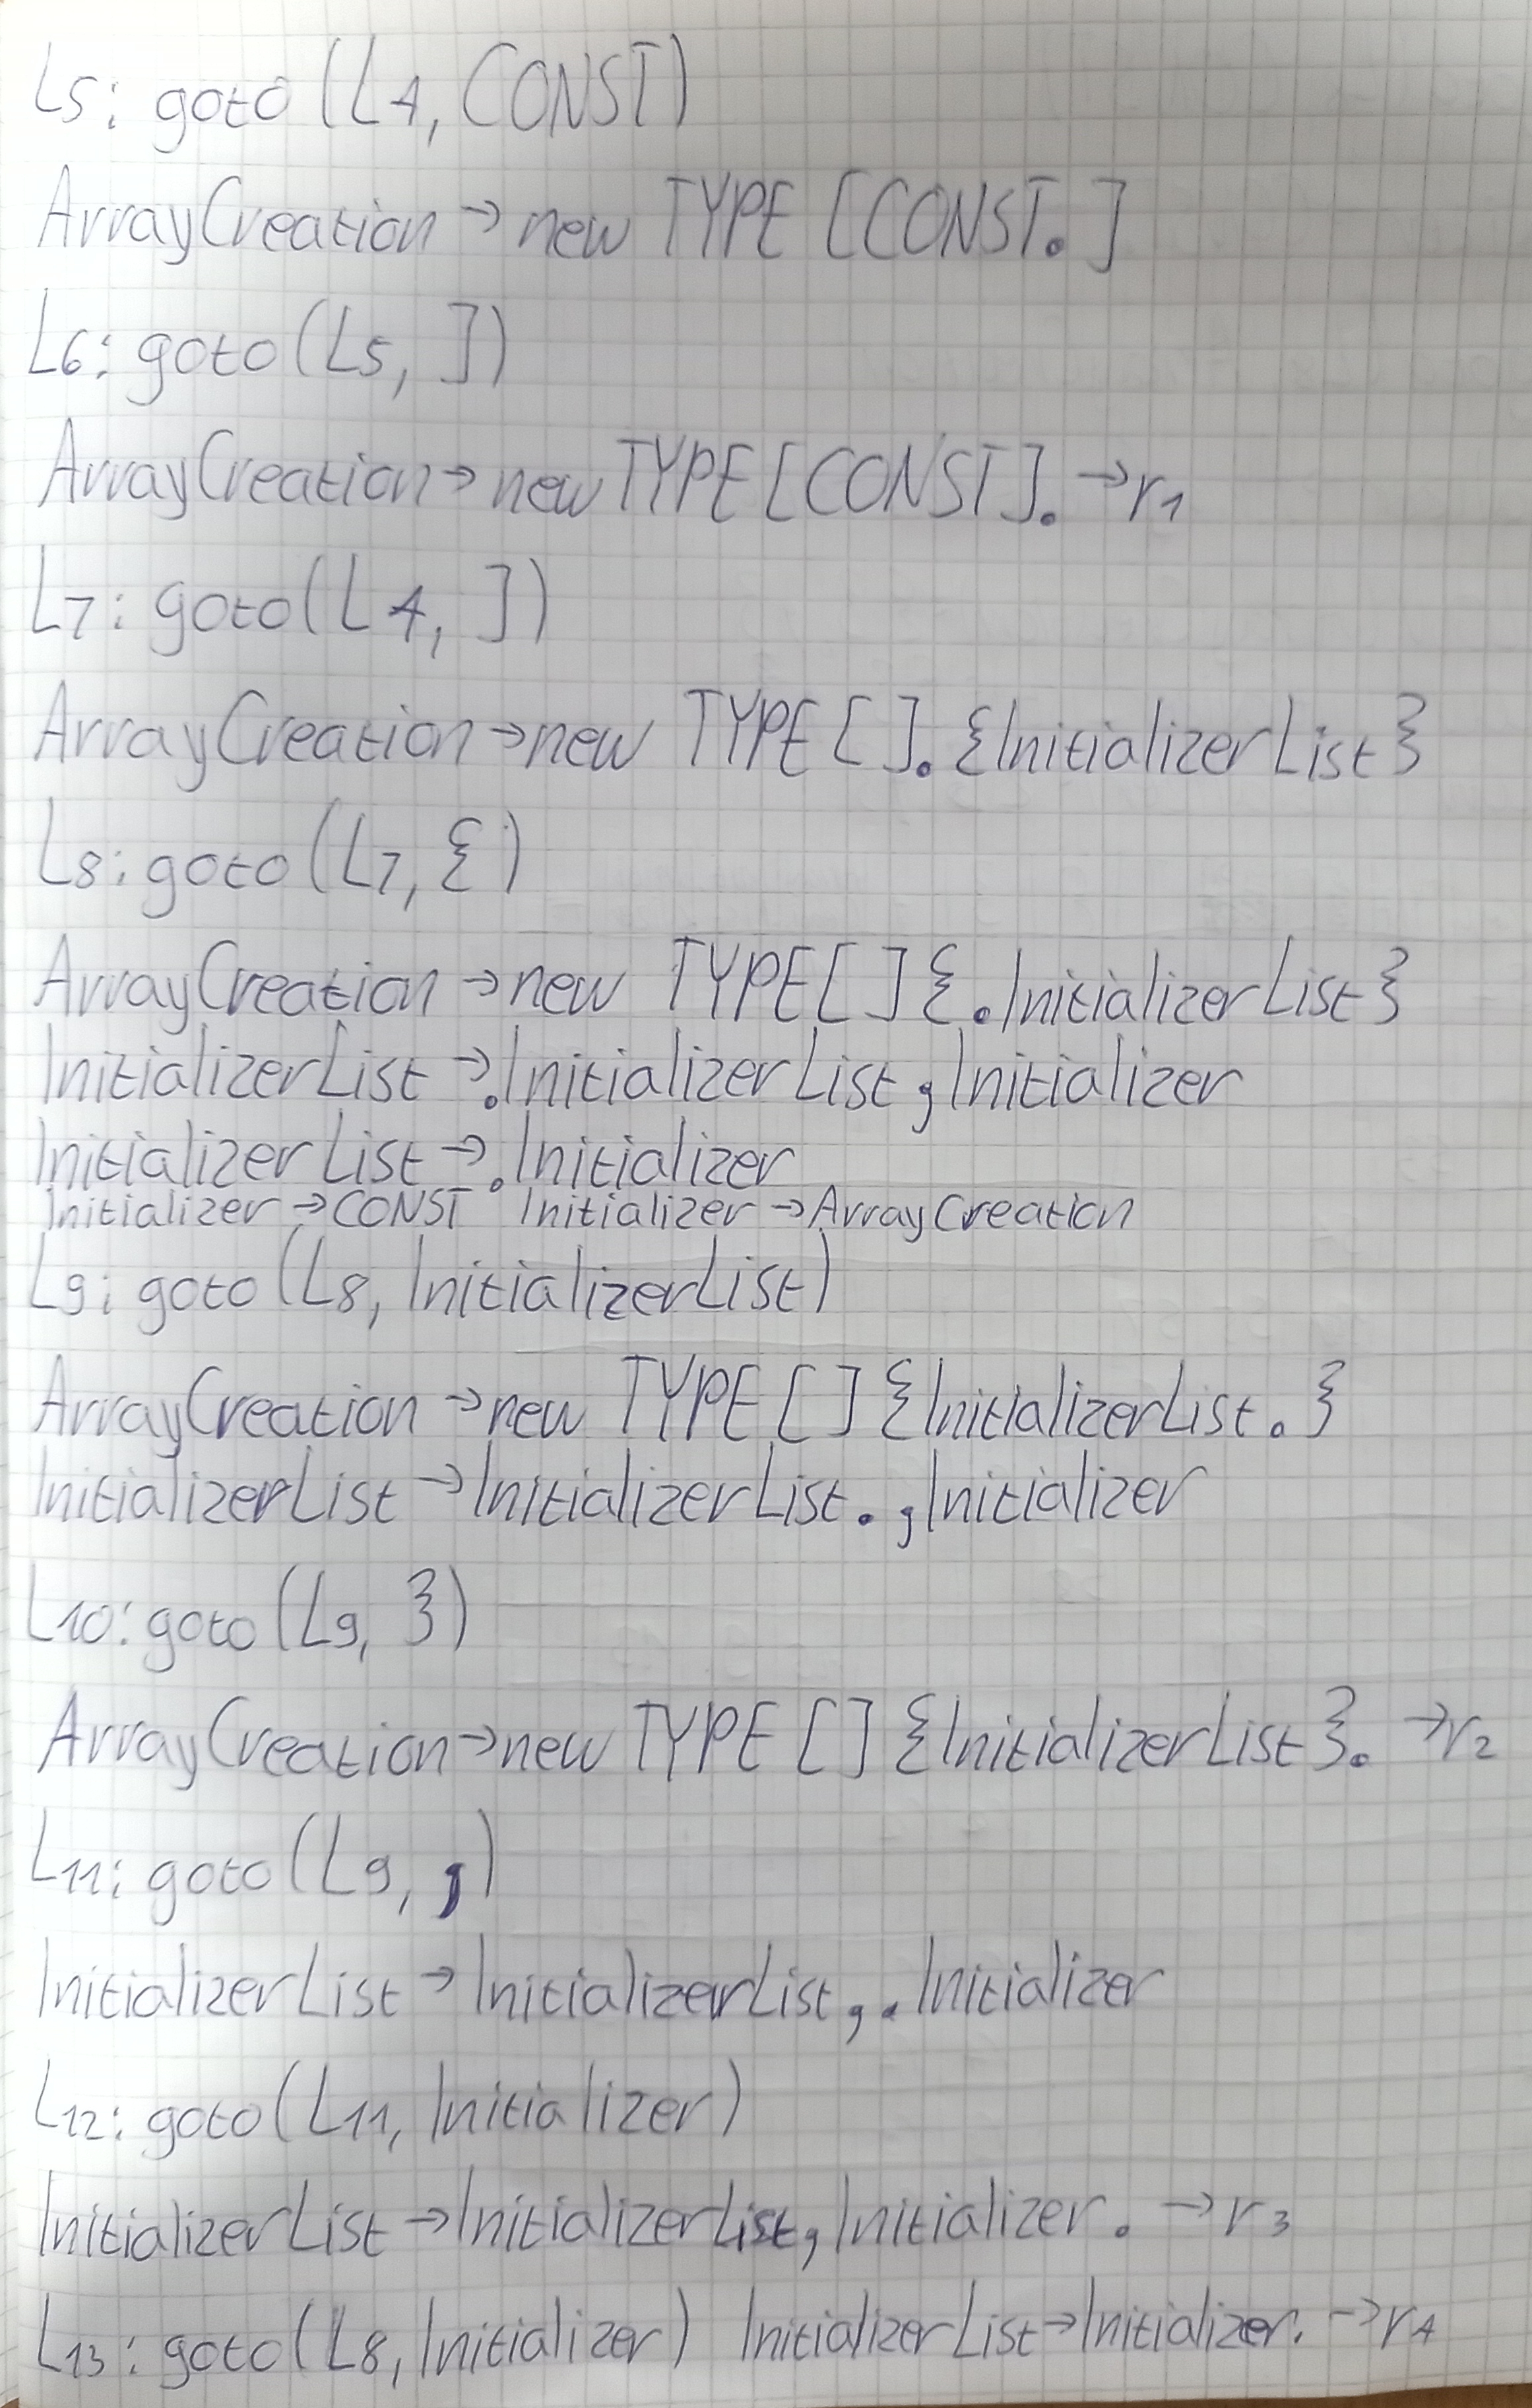 L5: goto (L4, CONST)
ArrayCreation → new TYPE [CONST. ]
L6: goto (L5, ])
ArrayCreation → new TYPE [CONST]. → r1
L7: goto (L4, ])
ArrayCreation → new TYPE [ ]. {InitializerList }
L8: goto (L7, {)
ArrayCreation → new TYPE [ ] { .InitializerList }
InitializerList → .InitializerList , Initializer
InitializerList → .Initializer
Initializer → CONST Initializer → ArrayCreation
L9: goto (L8, InitializerList)
ArrayCreation → new TYPE [ ] {InitializerList . }
InitializerList → InitializerList . , Initializer
L10: goto (L9, })
ArrayCreation → new TYPE [ ] {InitializerList }. → r2
L11: goto (L9, ,)
InitializerList → InitializerList , . Initializer
L12: goto (L11, Initializer)
InitializerList → InitializerList, Initializer . → r3
L13: goto (L8, Initializer) InitializerList → Initializer. → r4